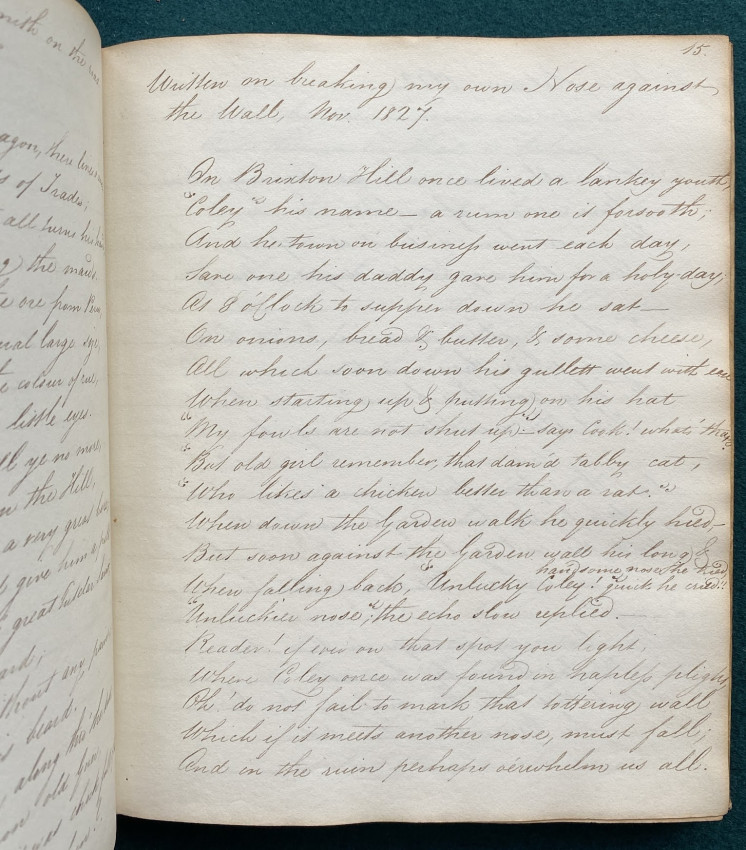 15.
Written on breaking my own Nose against
the Wall, Nov. 1827.
On Brixton Hill once lived a lankey youth,
"Coley" his name — a rum one is forsooth;
And he town on business went each day,
Save one his daddy gave him for a holy-day;
At 8 o'Clock to supper down he sat —
On onions, bread & butter, & some cheese,
All which soon down his gullett went with ease
When starting up & putting on his hat
"My fowls are not shut up" — says Cook! what's that?
"But old girl remember, that dam'd tabby cat,
"Who likes a chicken better than a rat."
When down the Garden walk he quickly hied —
But soon against the Garden wall his long &
handsome nose he tried
When falling back, "Unlucky Coley! "quick he cried!!
"Unluckier nose", the echo slow replied. —
Reader! if ever on that spot you light,
Where Coley once was found in hapless plight,
Oh! do not fail to mark that tottering wall
Which if it meets another nose, must fall;
And in the ruin perhaps o'erwhelm us all.
on the
agon, there lived
of Trades;
all turns his
the maids
ore from
large size,
colour of
little eyes.
ye no more,
on the Hill,
a very great
give him a
great
ard;
without any
beard.
along the
on old
was